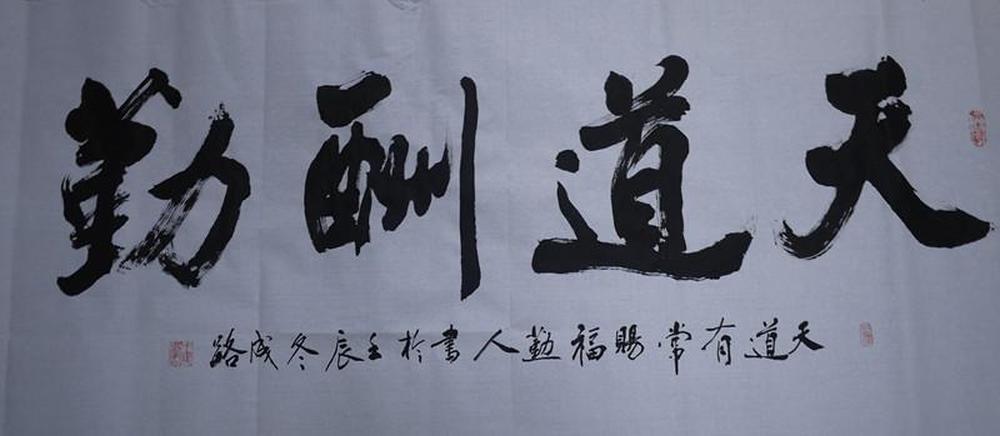 天道酬勤
天道有常赐福勤人書於壬辰冬成路